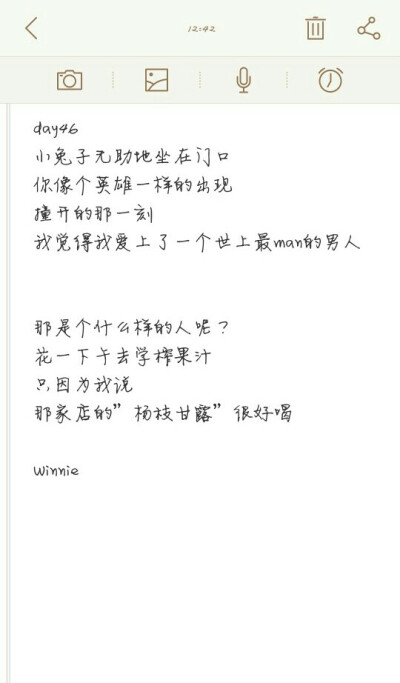 12:42
day46
小兔子无助地坐在门口
你像个英雄一样的出现
撞开的那一刻
我觉得我爱上了一个世上最man的男人
那是个什么样的人呢？
花一下午去学榨果汁
只因为我说
那家店的”杨枝甘露”很好喝
Winnie